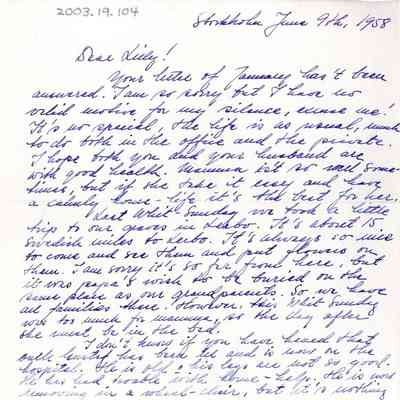 2003.19.104
Stockholm June 9th, 1958
Dear Lily!
Your letter of January has't been
answered. I am so sorry but I have no
valid motive for my silence, excuse me!
It's no special, the life is as usual, much
to do both in the office and the private.
I hope both you and your husband are
with good health. Mamma is't so well some-
times, but if she take it easy and have
a calmly home-life it's the best for her.
Last Whit Sunday we took a little
trip to our graves in It's about 15
Swedish miles to It's always so nice
to come and see them and put flowers on
them. I am sorry it's so far from here, but
it was papa's wish to be buried on the
same place as our grandparents. So we have
all families there. However this Whit Sunday
was too much for mamma, so the day after
she must be in the bed.
I don't know if you have heared that
uncle Gustaf has been ill and is now on the
hospital. He is old & his legs are not so good.
He has had trouble with home-help. He is now
removing in a wheel-chair, but it's nothing